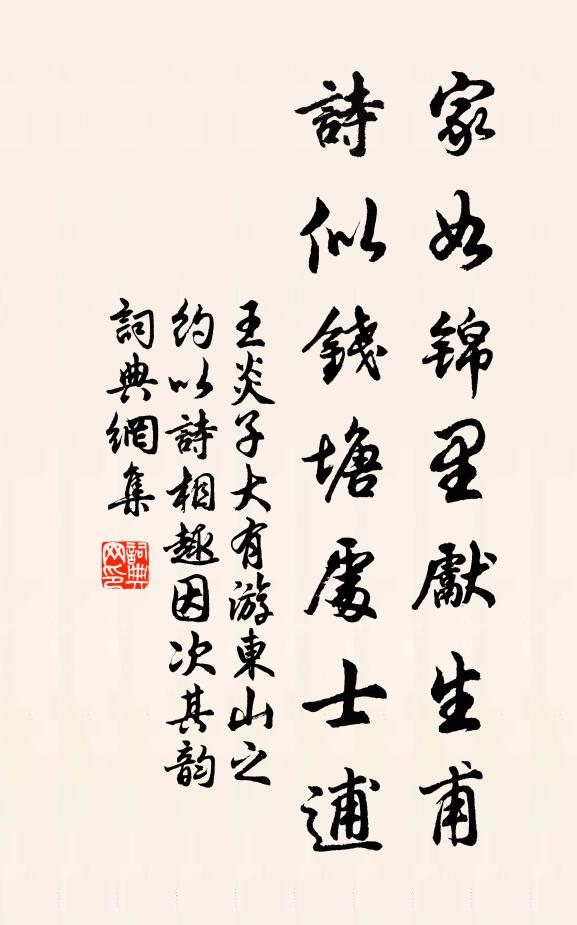 家如錦里獻生甫
詩似錢塘處士逋
王炎子大有游東山之
約以詩相趣因次其韵
詞典網集
詞典
网印